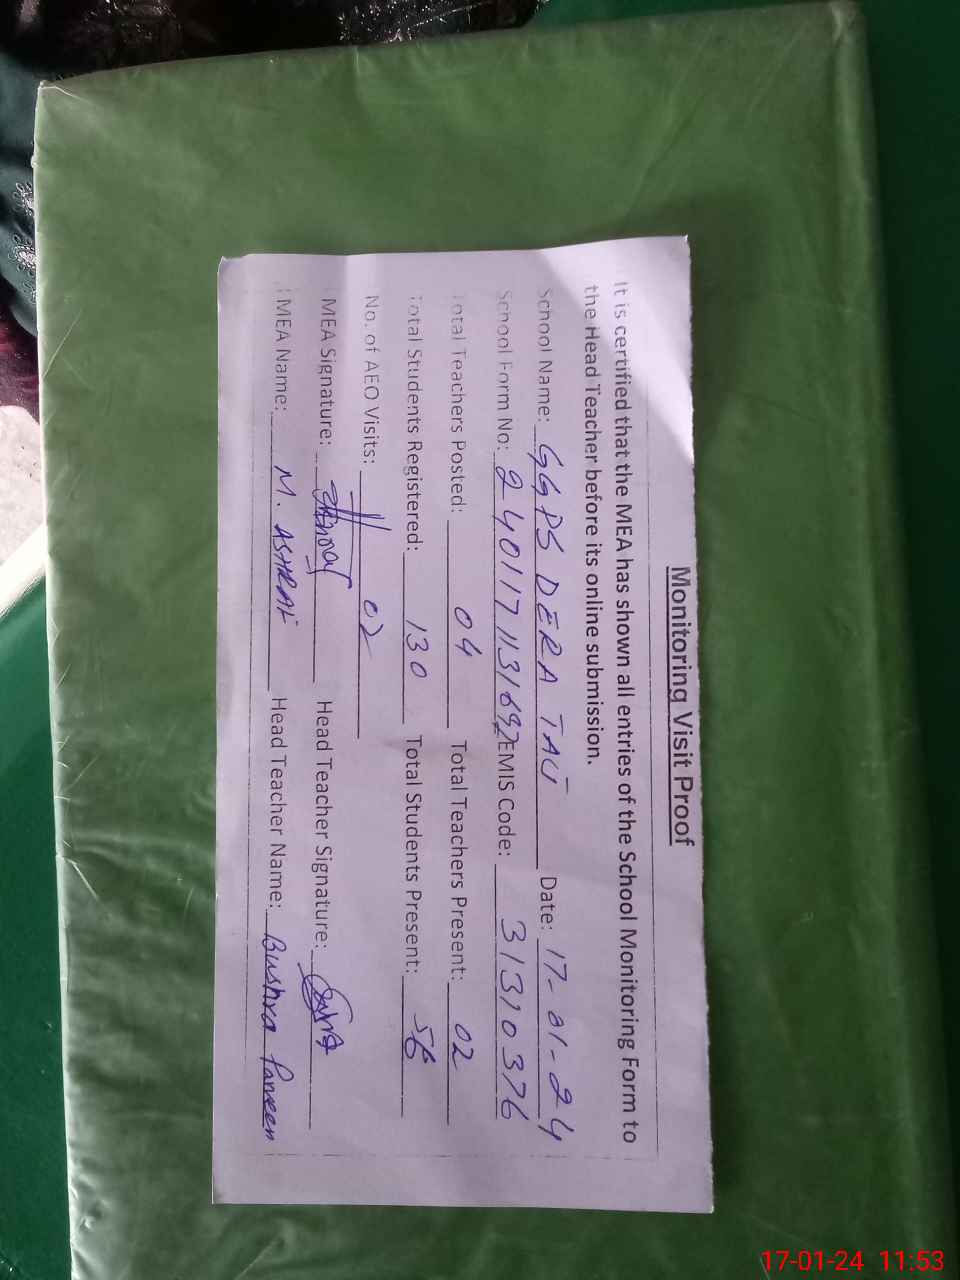 Monitoring Visit Proof
It is certified that the MEA has shown all entries of the School Monitoring Form to
the Head Teacher before its online submission.
School Name: GGPS DERA TAU Date: 17-01-24
School Form No: 2401171131692 EMIS Code: 31310376
Total Teachers Posted: 04 Total Teachers Present: 02
Total Students Registered: 130 Total Students Present: 56
No. of AEO Visits: 02
MEA Signature: Head Teacher Signature:
MEA Name: M. ASHRAF Head Teacher Name: Bushra Parveen
17-01-24 11:53